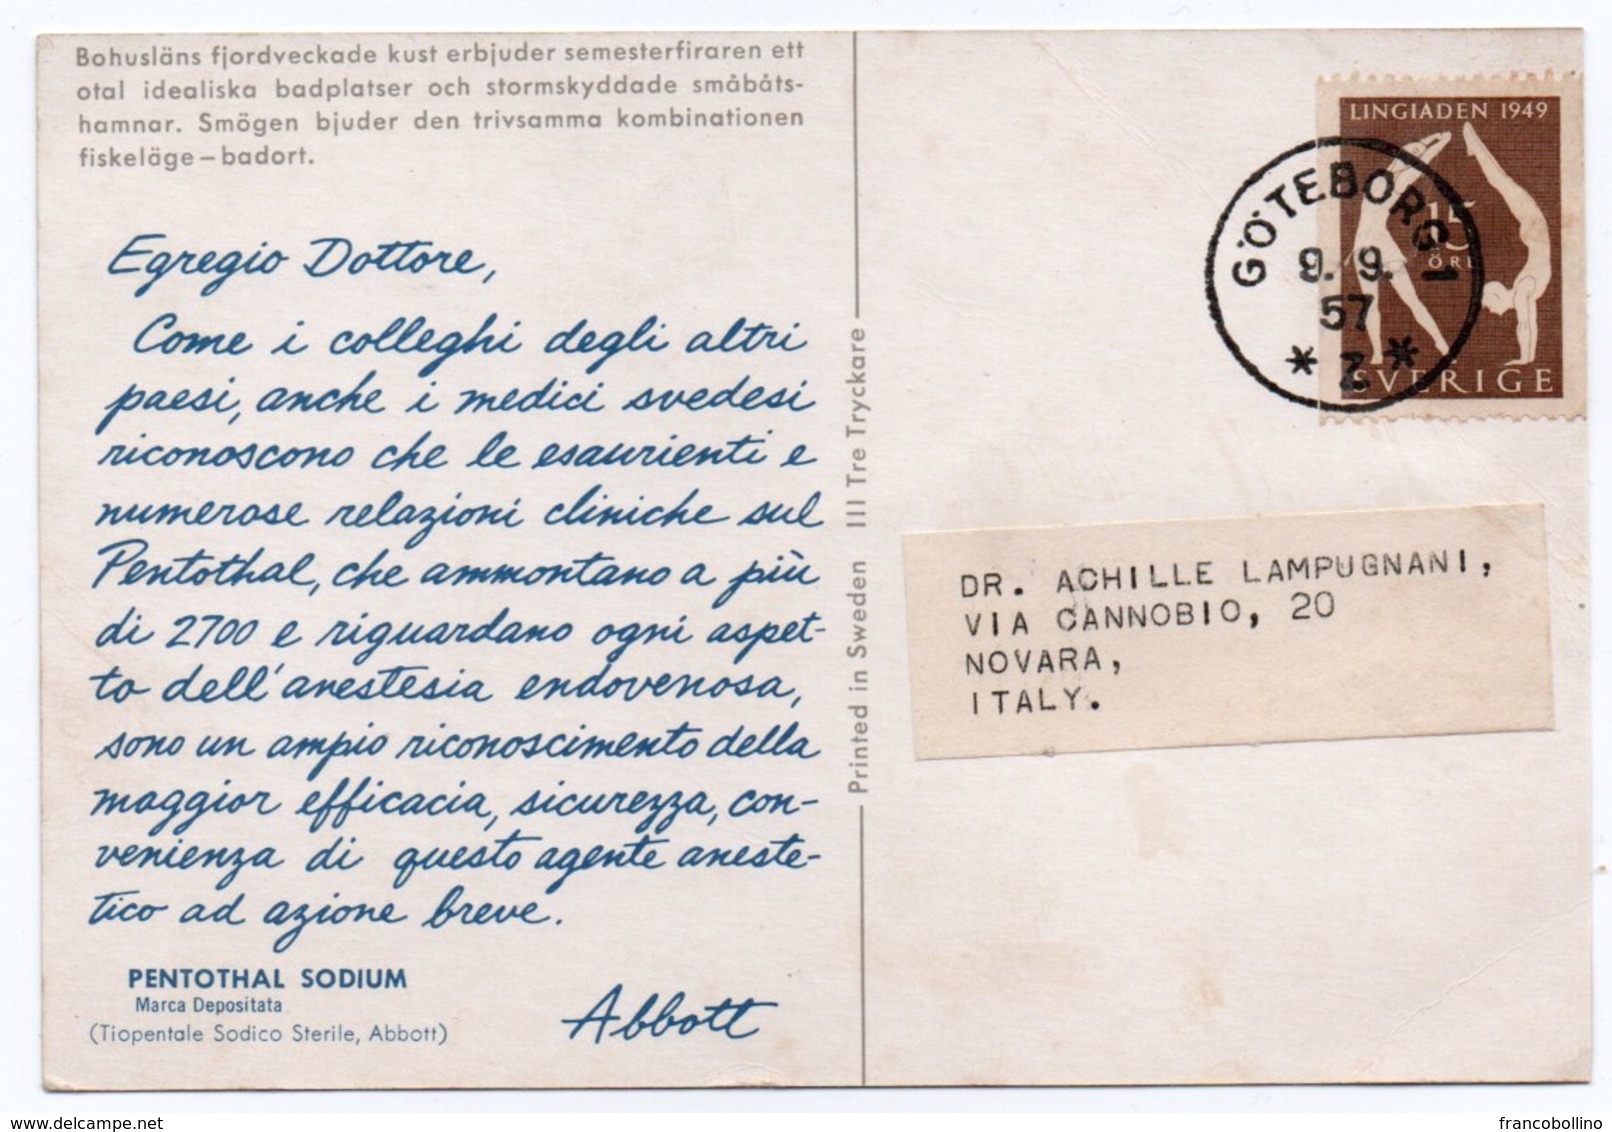 Bohusläns fjordveckade kust erbjuder semesterfiraren ett
otal idealiska badplatser och stormskyddade småbåts-
hamnar. Smögen bjuder den trivsamma kombinationen
fiskeläge – badort.
Egregio Dottore,
Come i colleghi degli altri
paesi, anche i medici svedesi
riconoscono che le esaurienti e
numerose relazioni cliniche sul
Pentothal, che ammontano a più
di 2700 e riguardano ogni aspet-
to dell'anestesia endovenosa,
sono un ampio riconoscimento della
maggior efficacia, sicurezza, con-
venienza di questo agente aneste-
tico ad azione breve.
PENTOTHAL SODIUM
Marca Depositata
(Tiopentale Sodico Sterile, Abbott)
Abbott
Printed in Sweden III Tre Tryckare
LINGIADEN 1949
15
ÖRE
SVERIGE
GÖTEBORG 1
9. 9.
57
* Z *
DR. ACHILLE LAMPUGNANI,
VIA CANNOBIO, 20
NOVARA,
ITALY.
delcampe.net
francobollino